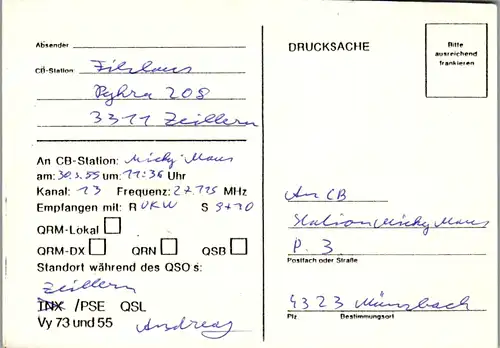 Absender
CB-Station:
Pyhra 208
3311 Zeillern
An CB-Station: Micky Maus
am: 30.5. um: 11:36 Uhr
Kanal: 13 Frequenz: 27.115 MHz
Empfangen mit: R UKW S 9+10
QRM-Lokal
QRM-DX QRN QSB
Standort während des QSO's:
Zeillern
TNX /PSE QSL
Vy 73 und 55 Andreas
DRUCKSACHE
Bitte
ausreichend
frankieren
An CB
Station Micky Maus
P. 3
Postfach oder Straße
4323 Münzbach
Plz Bestimmungsort